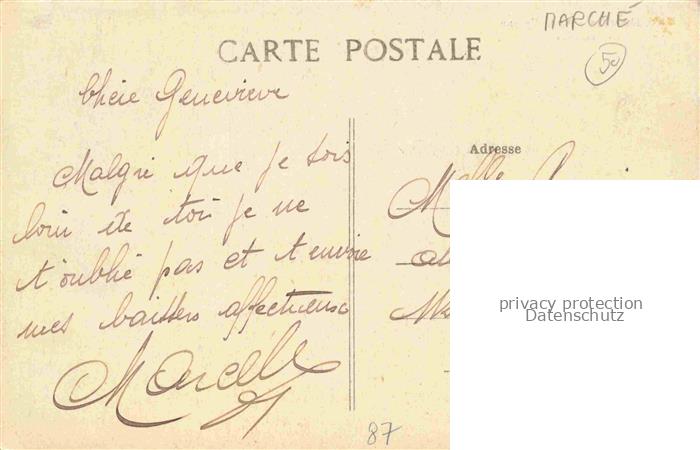 MARCHÉ
50
CARTE POSTALE
Chère Geneviève
Malgré que je sois
loin de toi je ne
t'oublie pas et t'envoie
mes baisers affectueux
Marcelle
Adresse
Melle
privacy protection
Datenschutz
87